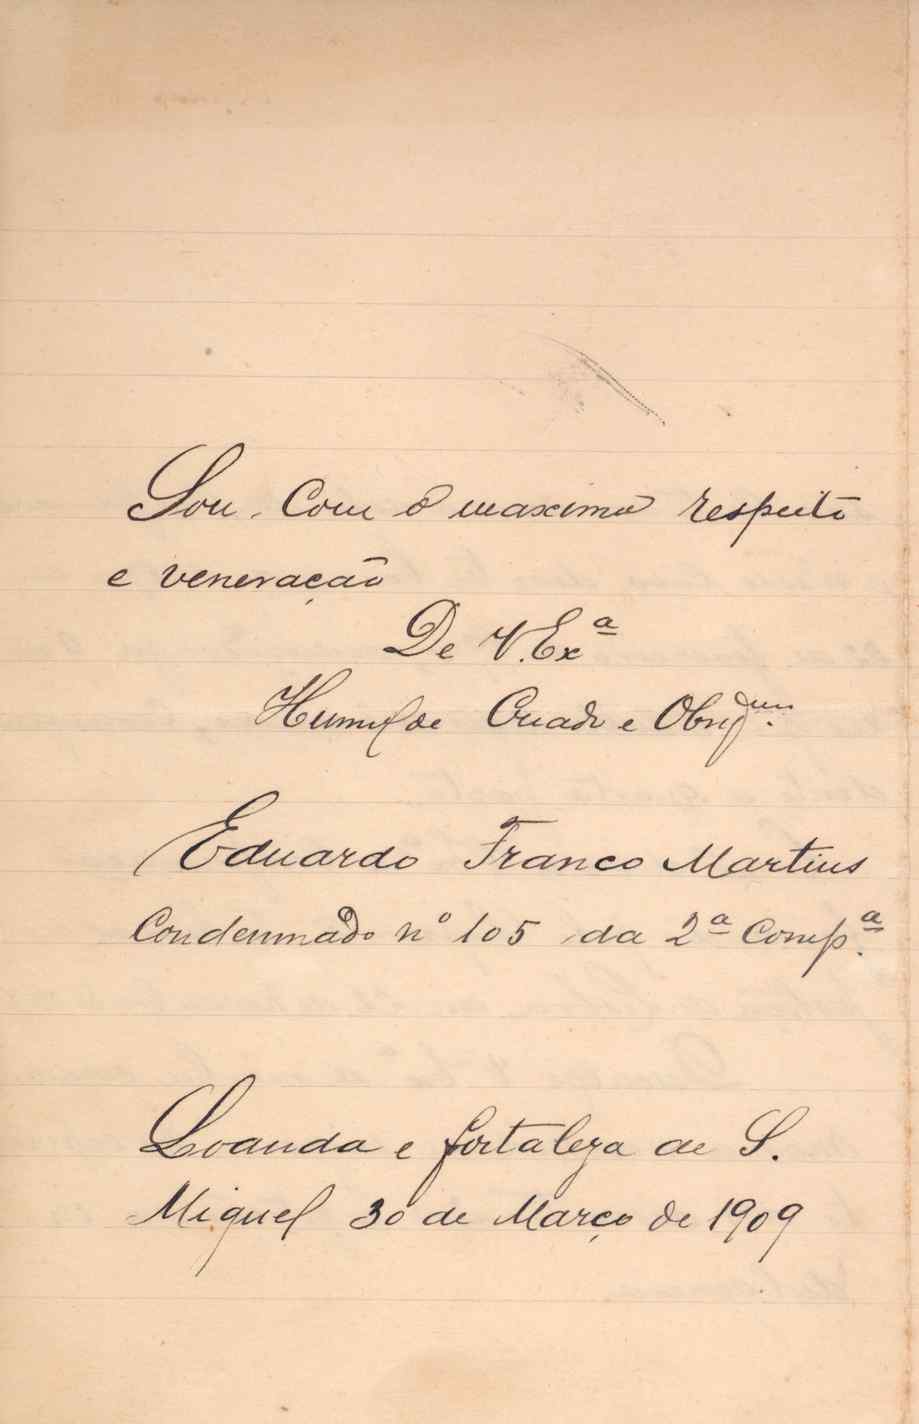 Sou com o maximo respeito
e veneração
De V. Exª
Humilde Criado e Obrigmo.
Eduardo Franco Martins
Condemnado nº 105 da 2ª Compª.
Loanda e fortaleza de S.
Miguel 30 de Março de 1909